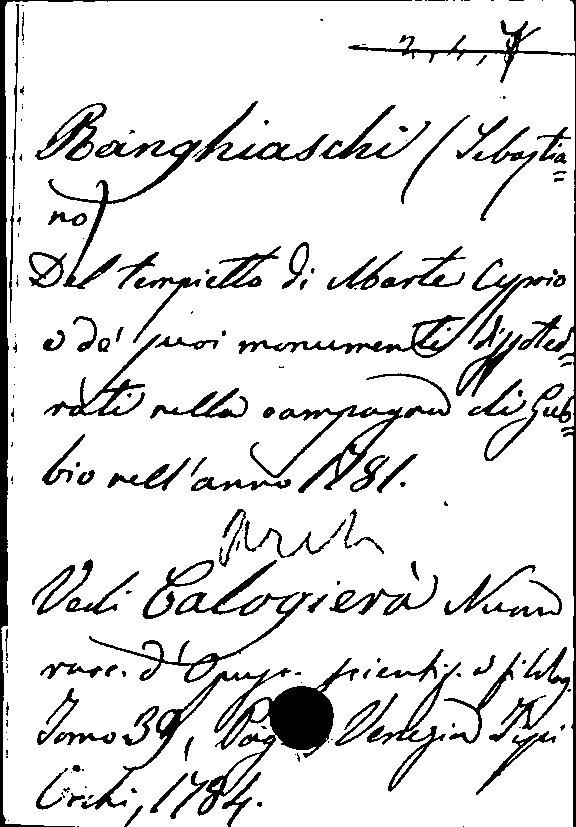 2, 4, 7
Ranghiaschi (Sebastia=
no)
Del tempietto di Marte Cyprio
e de' suoi monumenti dissoter=
rati nella campagna di Gub=
bio nell'anno 1781.
Vedi Calogierà Nuova
racc. d'Opusc. scientif. e filolog.
Tomo 39, Pag Venezia Tipi
Occhi, 1784.